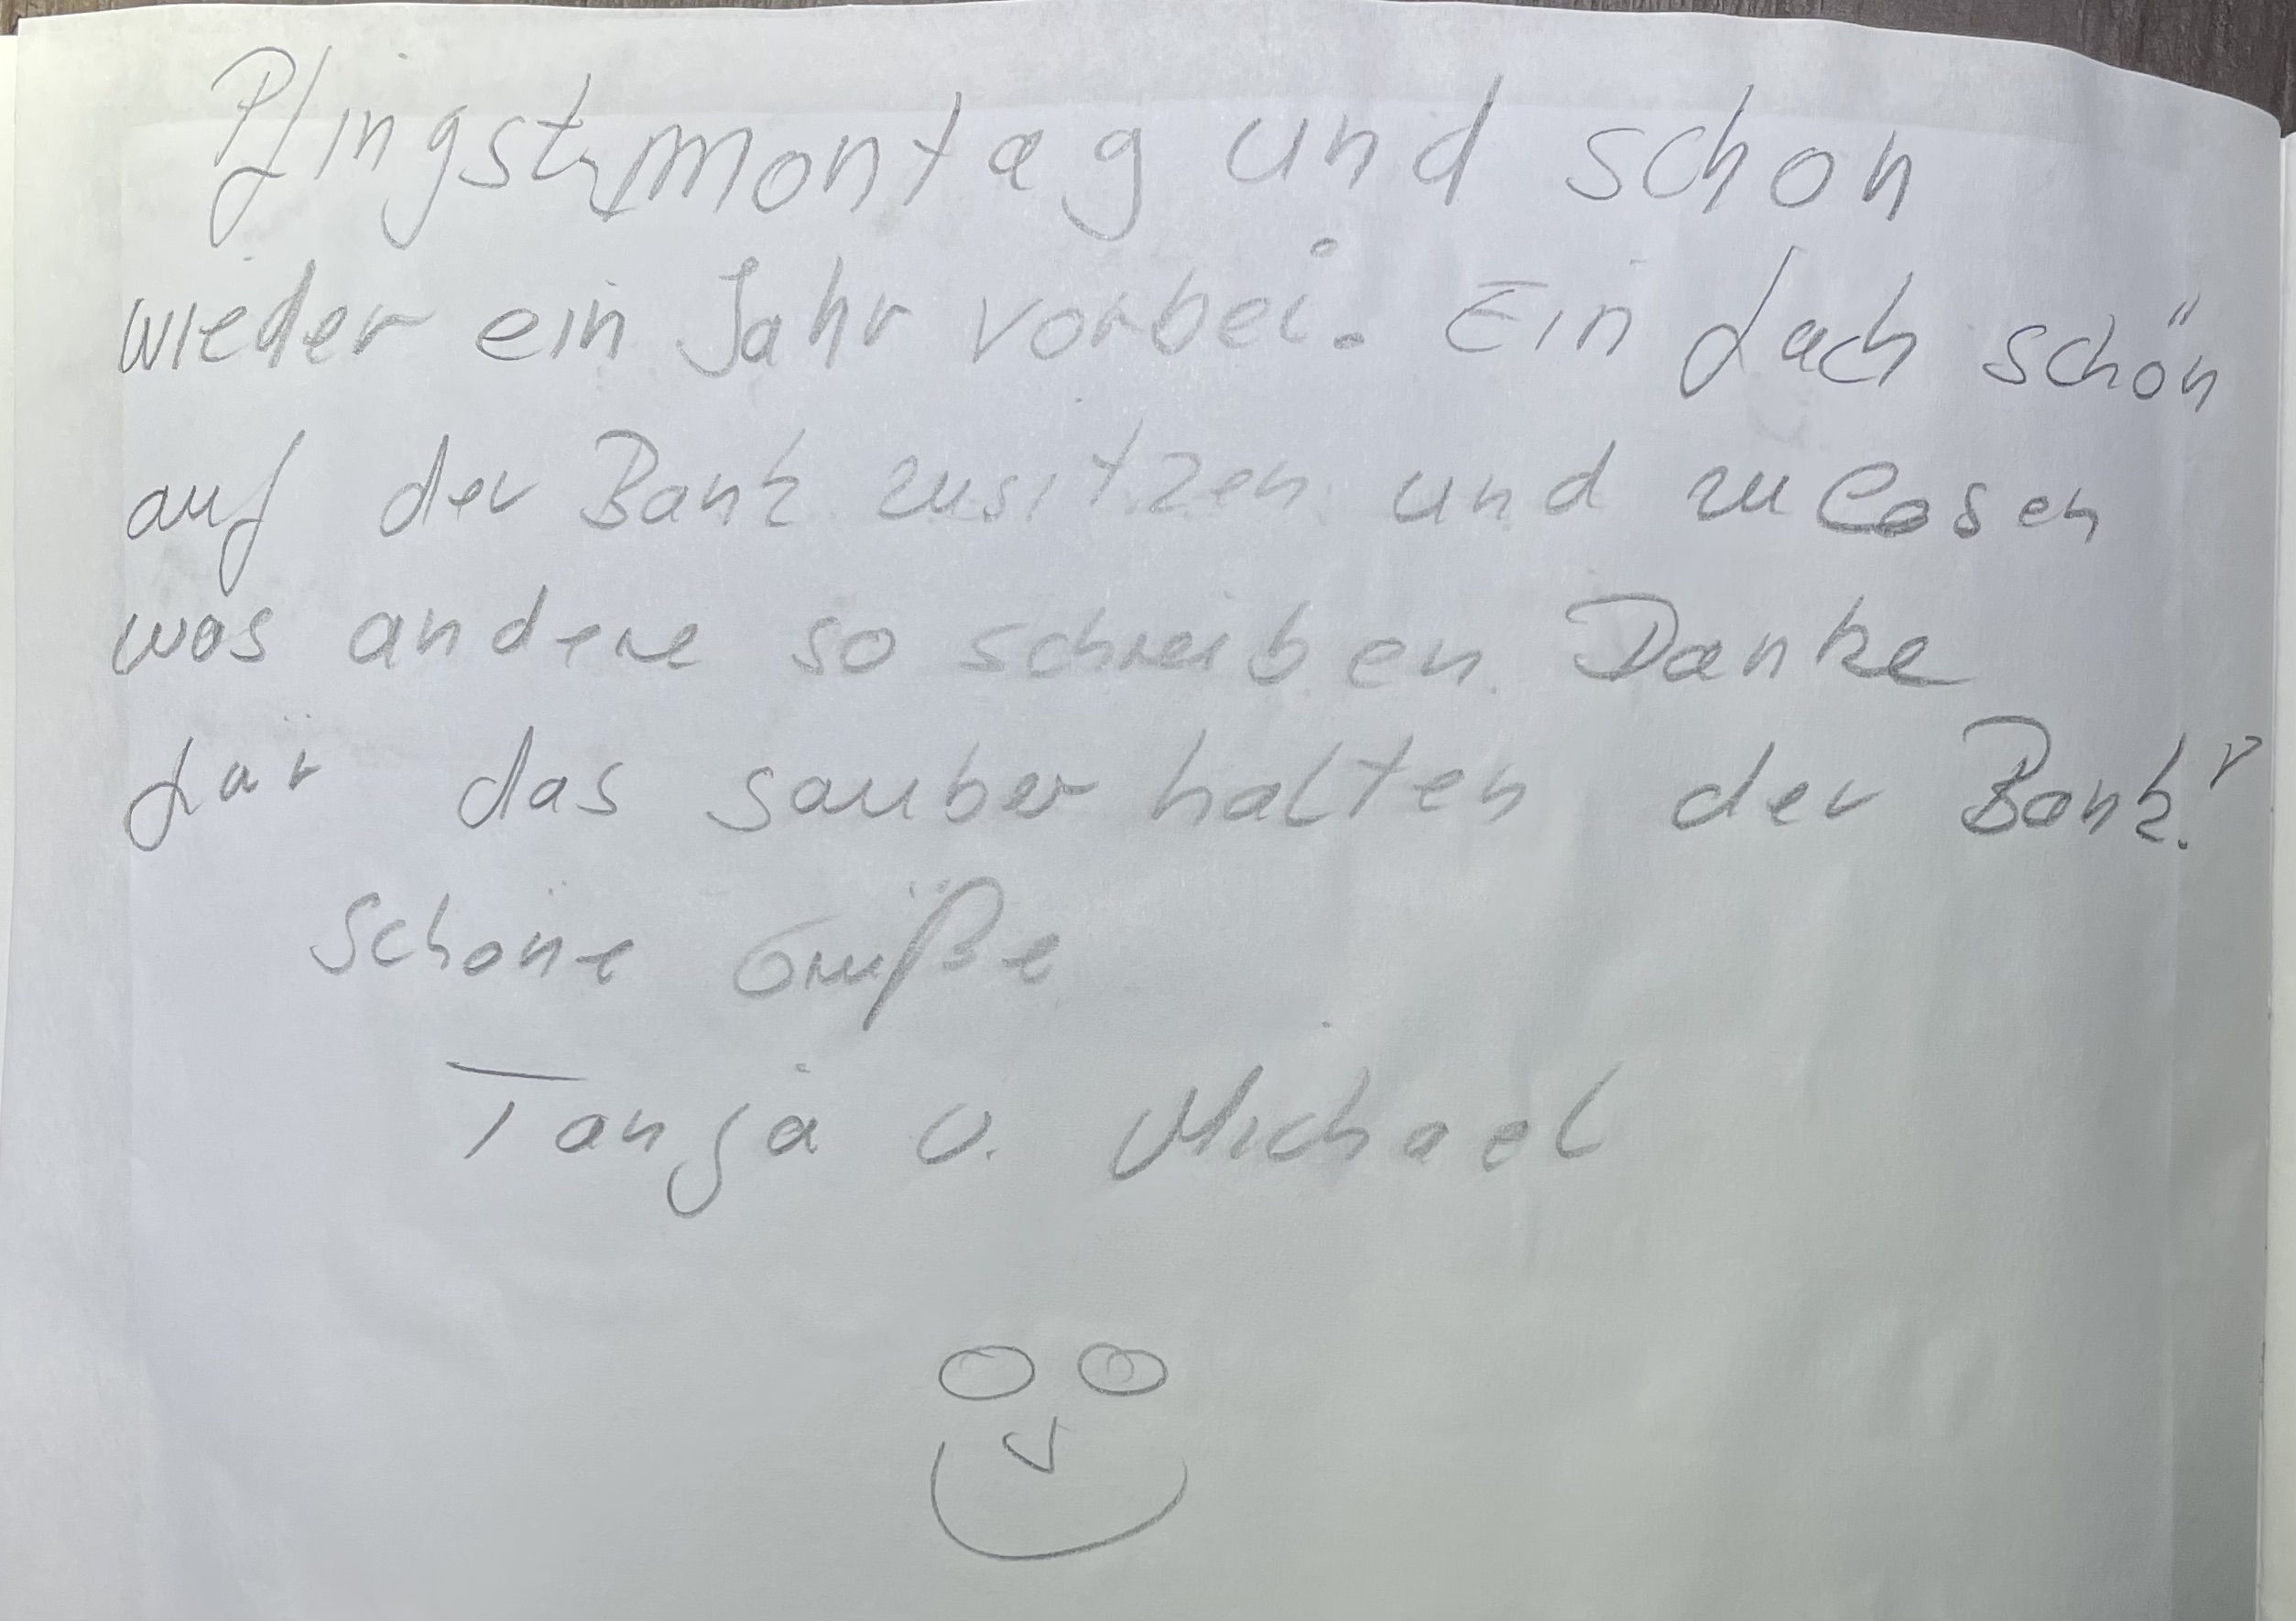 Pfingstmontag und schon
wieder ein Jahr vorbei. Ein fach schön
auf der Bank zusitzen und zu lesen
was andere so schreiben. Danke
für das sauber halten der Bank!
Schöne Grüße
Tanja u. Michael